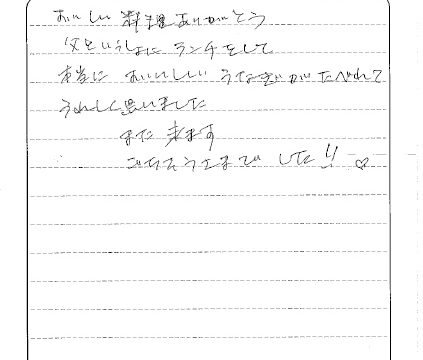 おいしい料理ありがとう
父といっしょに ランチをして
本当に おいしい うなぎがたべれて
うれしく思いました
また 来ます
ごちそうさまでした!! ♡